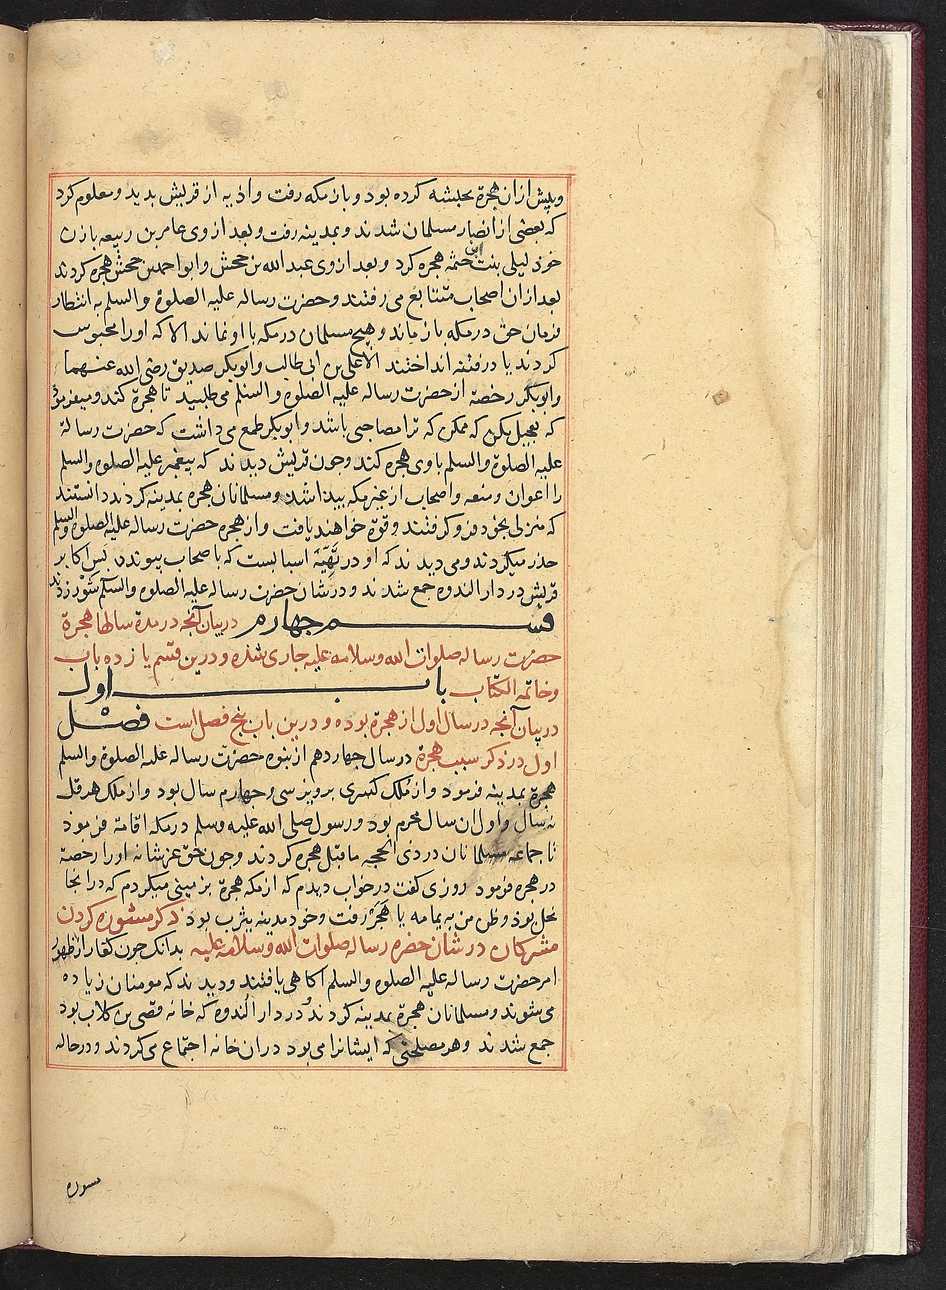 وپیش ازان هجرة بحبشه کرده بود و باز مکه رفت و اذیه از قریش بدید و معلوم کرد
که بعضی از انصار مسلمان شدند و بمدینه رفت و بعد از وی عامر بن ربیعه بازن
خود لیلی بنت ابی حثمه هجره کرد و بعد از وی عبد الله بن جحش و ابو احمد بن جحش هجره کردند
بعد ازان اصحاب متتابع می رفتند و حضرت رساله علیه الصلوة والسلم به انتظار
فرمان حق در مکه باز ماند و هیچ مسلمان در مکه با او نماند الا که او را محبوس
کردند یا در فتنه انداختند الا علی بن ابی طالب و ابو بکر صدیق رضی الله عنهما
وابوبکر رخصة از حضرت رساله علیه الصلوة والسلم می طلبید تا هجرة کند و میفرمود
که تعجیل مکن که ممکن که ترا مصاحبی باشد و ابوبکر طمع می داشت که حضرت رسالة
علیه الصلوة والسلم با وی هجره کند و چون قریش دیدند که پیغمبر علیه الصلوه والسلم
را اعوان و منعه و اصحاب از غیر مکه پیدا شد و مسلمانان هجره بمدینه کردند دانستند
که منزلی بخود فرو گرفتند و قوة خواهند یافت و از هجره حضرت رساله علیه الصلوه والسلم
حذر میکردند و می دیدند که او در تهیّه اسبابست که با صحاب پیوندد پس اکابر
قریش در دار الندوه جمع شدند و در شان حضرت رساله علیه الصلوه والسلم شور زدند
قسم چهارم در بیان آنچه در مدة سالها هجرة
حضرت رساله صلوات الله وسلامه علیه جاری شده و درین قسم یازده باب
وخاتمه الکتاب باب اول
در بیان آنچه در سال اول از هجرة بوده و درین باب پنج فصل است فصل
اول در ذکر سبب هجرة در سال چهاردهم از نبوه حضرت رساله علیه الصلوة والسلم
هجرة بمدینه فرمود و از ملک کسری پرویز سی و چهارم سال بود و از ملک هرقل
نه سال و اول ان سال محرم بود و رسول صلی الله علیه وسلم در مکه اقامة فرمود
تا جماعه مسلمانان در ذی الحجه ما قبل هجره کردند و چون حق عز شانه او را رخصة
در هجره فرمود روزی گفت در خواب دیدم که از مکه هجرة بزمینی میکردم که در انجا
نخل بود و ظن من به یمامه یا هَجَر رفت و خود مدینه یثرب بود ذکر مشوره کردن
مشرکان در شان حضره رساله صلوات الله وسلامه علیه بدانک چون کفار از ظهور
امر حضرت رساله علیه الصلوه والسلم اکاهی یافتند و دیدند که مومنان زیاده
می شوند و مسلمانان هجرة بمدینه کردند و در دار الندوه که خانه قصی بن کلاب بود
جمع شدند و هر مصلحتی که ایشانرا می بود در ان خانه اجتماع می کردند و در حاله